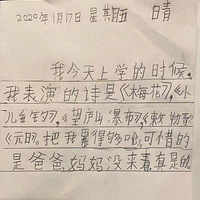 2020年1月17日 星期五 晴
我今天上学的时候，
我表演的诗是《梅花》，《小
儿垂钓》，《望庐山瀑布》，《敕勒歌》
《元日》。把我累得够呛，可惜的
是爸爸、妈妈没来看，真是的